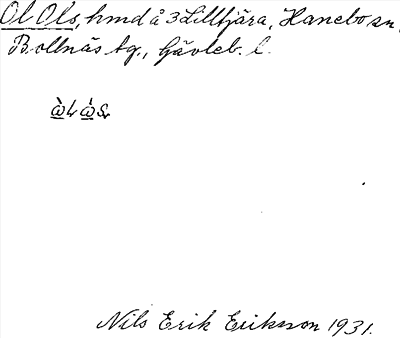 Ol Ols, hmd å 3 Lilltjära, Hanebo sn,
Bollnäs tg., Gävleb. l.
Nils Erik Eriksson 1931.